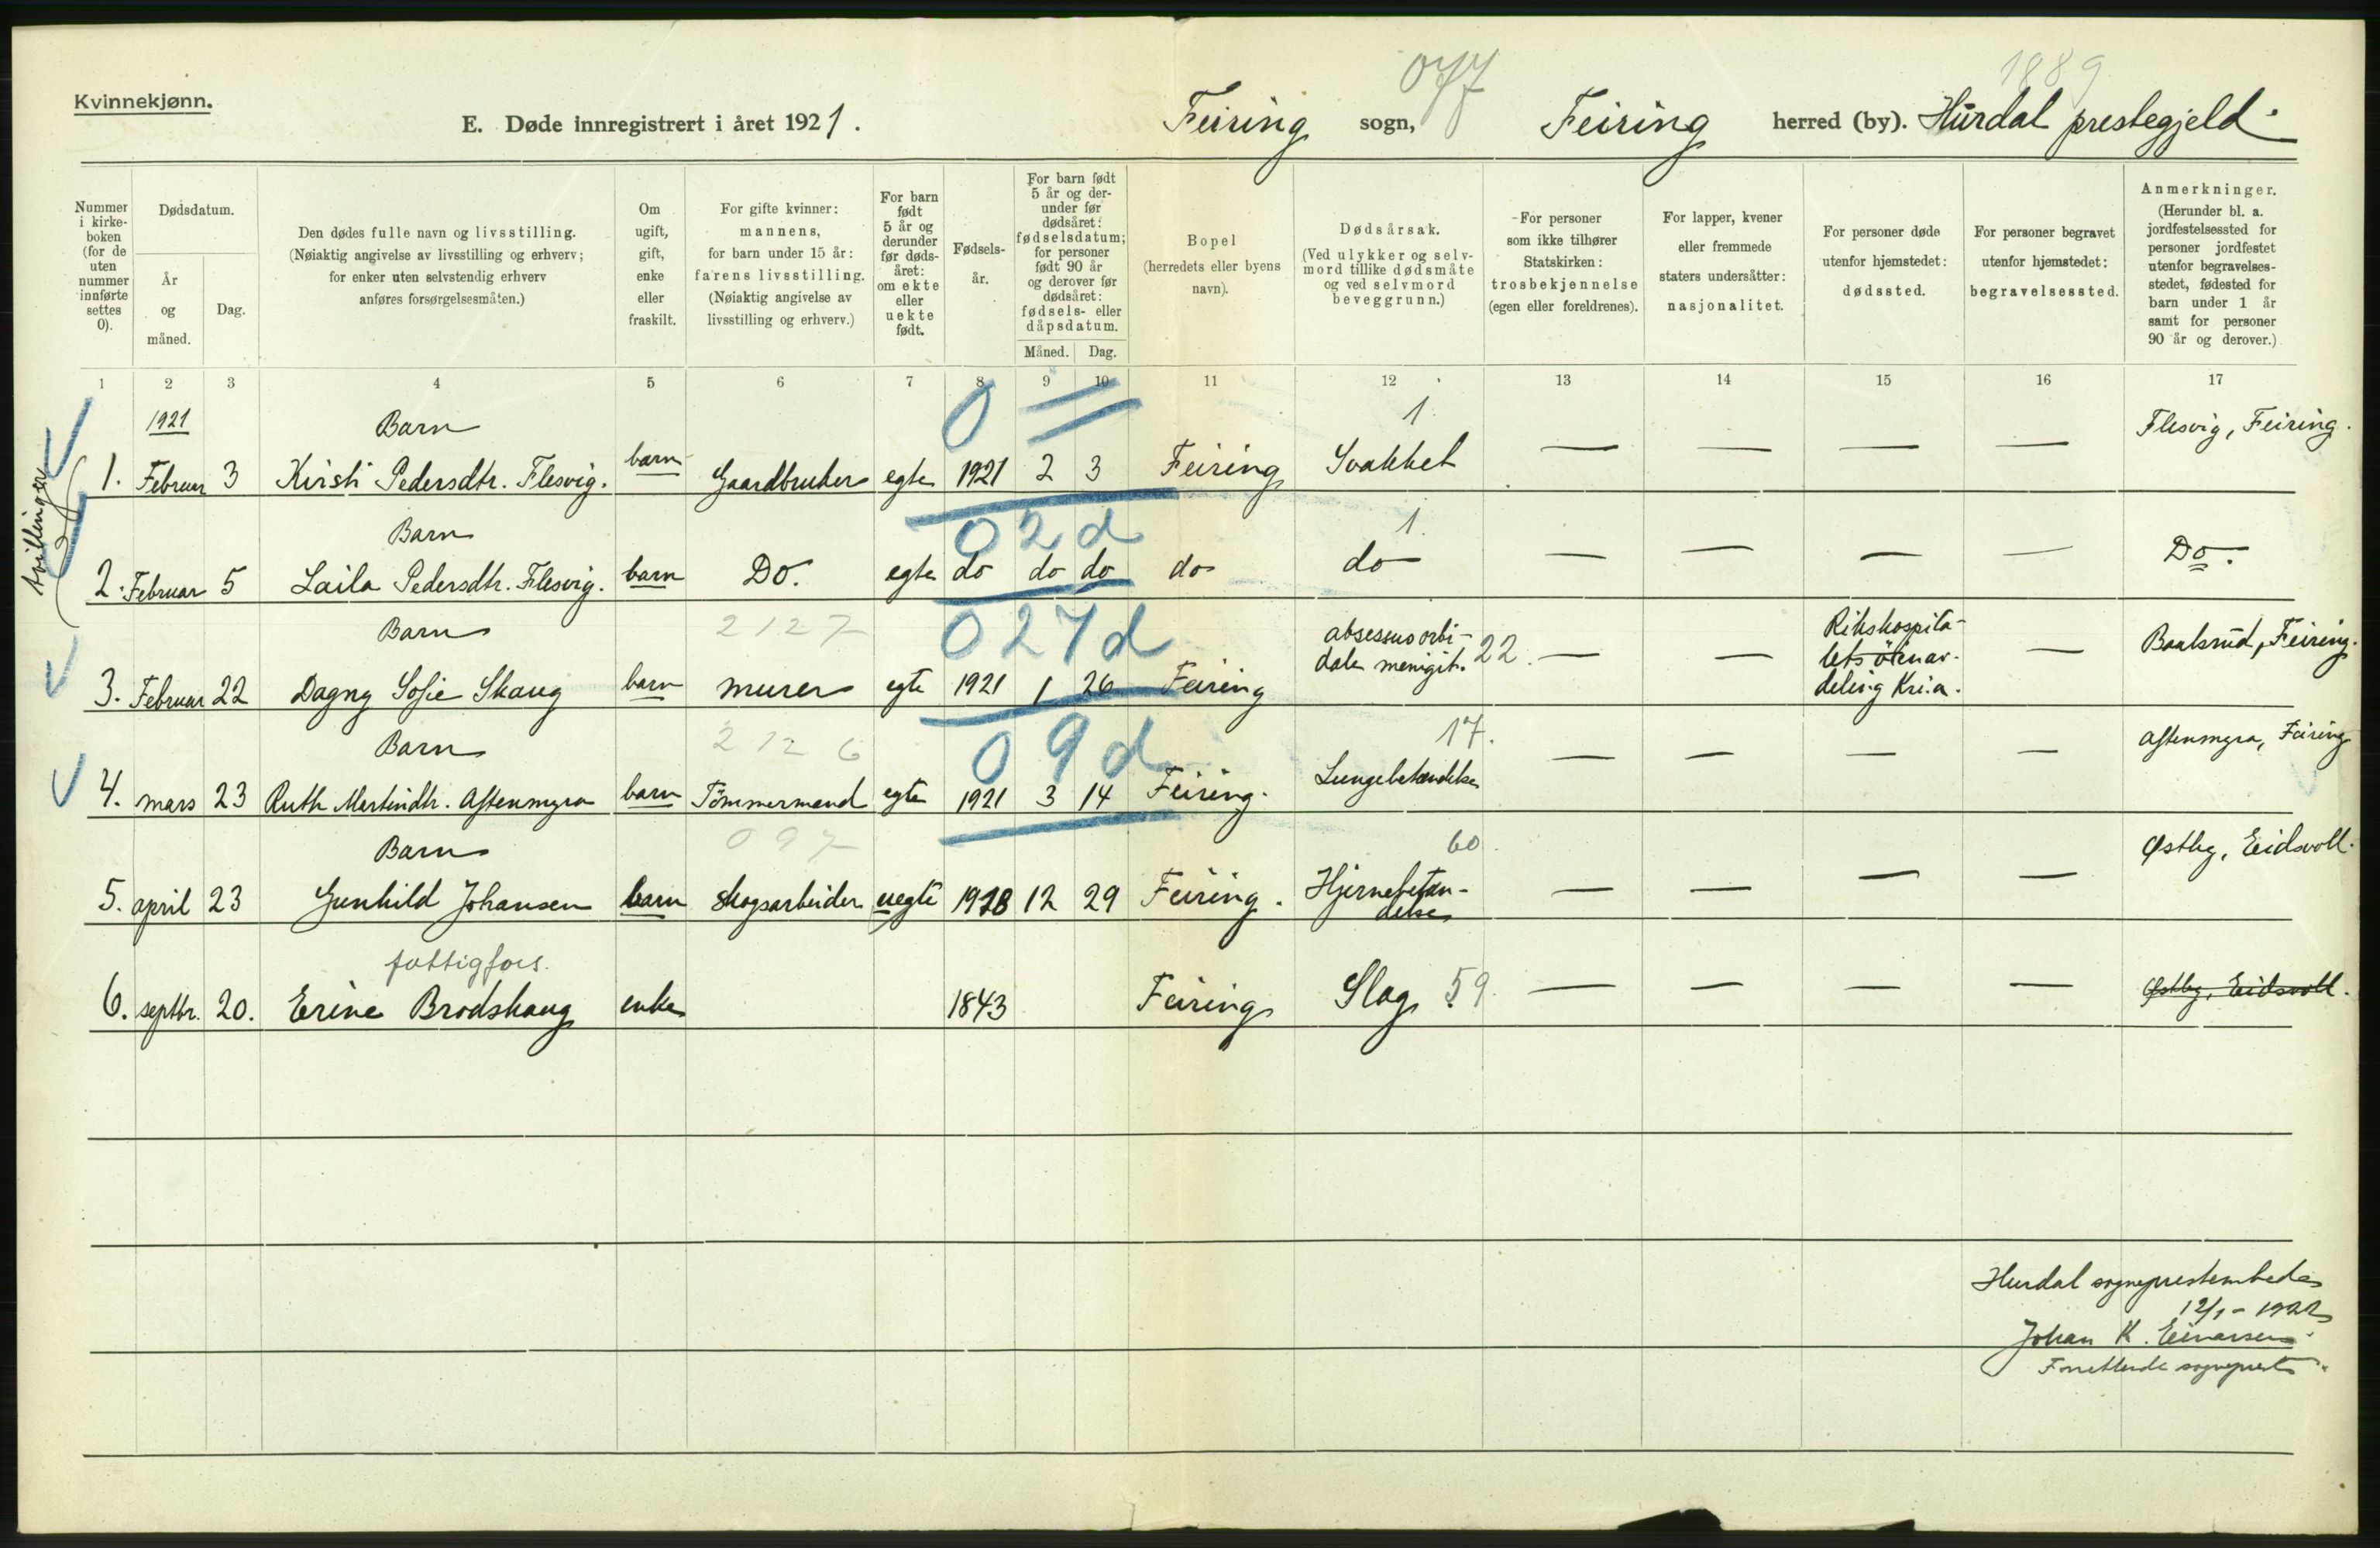 Kvinnekjønn.
077
1889
E. Døde innregistrert i året 1921.
Feiring sogn, Feiring herred (by). Hurdal prestegjeld.
Nummer i kirke-boken (for de uten nummer innførte settes 0).
Dødsdatum.
År og måned.
Dag.
Den dødes fulle navn og livsstilling.
(Nøiaktig angivelse av livsstilling og erhverv;
for enker uten selvstendig erhverv
anføres forsørgelsesmåten.)
Om ugift, gift, enke eller fraskilt.
For gifte kvinner:
mannens,
for barn under 15 år:
farens livsstilling.
(Nøiaktig angivelse av
livsstilling og erhverv.)
For barn født 5 år og derunder før døds-året: om ekte eller uekte født.
Fødsels-år.
For barn født 5 år og der-under før dødsåret: fødselsdatum; for personer født 90 år og derover før dødsåret: fødsels- eller dåpsdatum.
Måned. Dag.
Bopel
(herredets eller byens
navn).
Dødsårsak.
(Ved ulykker og selv-
mord tillike dødsmåte
og ved selvmord
beveggrunn.)
For personer
som ikke tilhører
Statskirken:
trosbekjennelse
(egen eller foreldrenes).
For lapper, kvener
eller fremmede
staters undersåtter:
nasjonalitet.
For personer døde
utenfor hjemstedet:
dødssted.
For personer begravet
utenfor hjemstedet:
begravelsessted.
Anmerkninger.
(Herunder bl. a.
jordfestelsessted for
personer jordfestet
utenfor begravelses-
stedet, fødested for
barn under 1 år
samt for personer
90 år og derover.)
1 2 3 4 5 6 7 8 9 10 11 12 13 14 15 16 17
tvillinger
1921 Barn 0 1 Flesvig, Feiring.
1. Februar 3 Kirsti Pedersdtr. Flesvig. barn Gaardbruker egte 1921 2 3 Feiring Svakhet — — — —
Barn 0 2 d 1
2. Februar 5 Laila Pedersdtr. Flesvig. barn Do. egte do do do do do — — — — Do.
Barn 2127 0 27 d absessus orbi- 22. Rikshospita-
dale menigit. lets ørenav- Baalsrud, Feiring.
3. Februar 22 Dagny Sofie Skaug barn murer egte 1921 1 26 Feiring — — deling Kr.ia. —
Barn 2126 0 9 d 17. Feiring
4. mars 23 Ruth Martindtr. Astenmyra barn Tömmermand egte 1921 3 14 Feiring. Lungebetændelse — — — — Astenmyra,
Barn 097 60. Østby, Eidsvoll.
5. april 23 Gunhild Johansen barn skogsarbeider uegte 1918 12 29 Feiring. Hjernebetæn- — — — —
delse
fattigfors.
6. septbr. 20. Erine Brodshaug enke 1843 Feiring Slag 59. — — — — Østby, Eidsvoll.
Hurdal sogneprestembede
12/1 - 1922
Johan K. Einarsen.
Forrettende sogneprest.